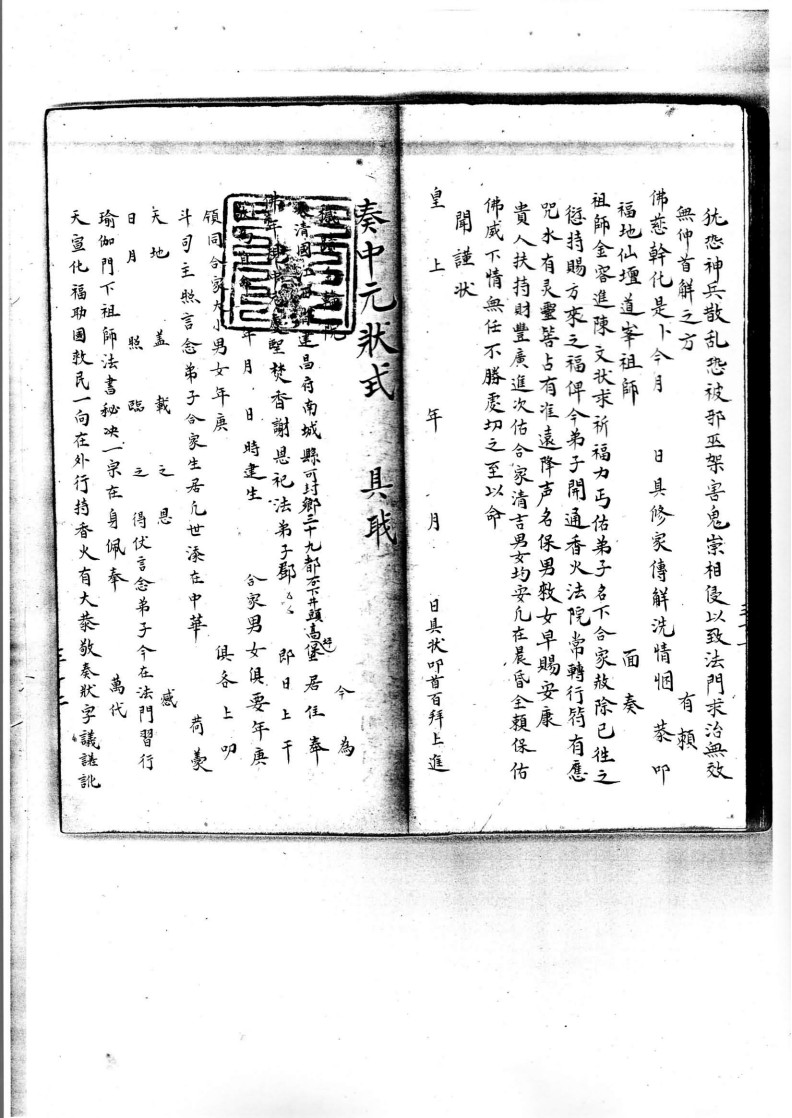 犹恐神兵散乱恐被邪巫架害鬼祟相侵以致法門求治無效
無仲首解之方 有賴
佛慈幹化是卜今月 日具修家傳解洗情悃 恭叩
福地仙壇道宰祖師 面奏
祖師金容進陳文狀求祈福力丐佑弟子名下合家赦除已徃之
愆持賜方來之福俾令弟子開通香火法院常轉行符有應
咒水有灵靈筶占有准遠降声名保男敎女早賜安康
貴人扶持財豐廣進次佑合家清吉男女均安凢在晨昏全賴保佑
佛威下情無任不勝虔切之至以命
聞謹狀
皇上 年 月 日具狀叩首百拜上進
奏中元狀式 具戢
院 今為
清國江西 建昌府南城縣可封鄉三十九都 下井頭高堡 居住奉
佛 聖焚香謝恩祀法弟子鄧 即日上干
年 月 日 時建生 合家男女俱要年庚
領同合家大小男女年庚 俱各上叩
斗司主照言念弟子合家生居凢世添在中華 荷蒙
天地 蓋載之恩 感
日月 照臨之 得伏言念弟子今在法門習行
瑜伽門下祖師法書秘決一宗在身佩奉 萬代
天宣化福助國救民一向在外行持香火有大恭敬奏狀字議諶訛
三十二